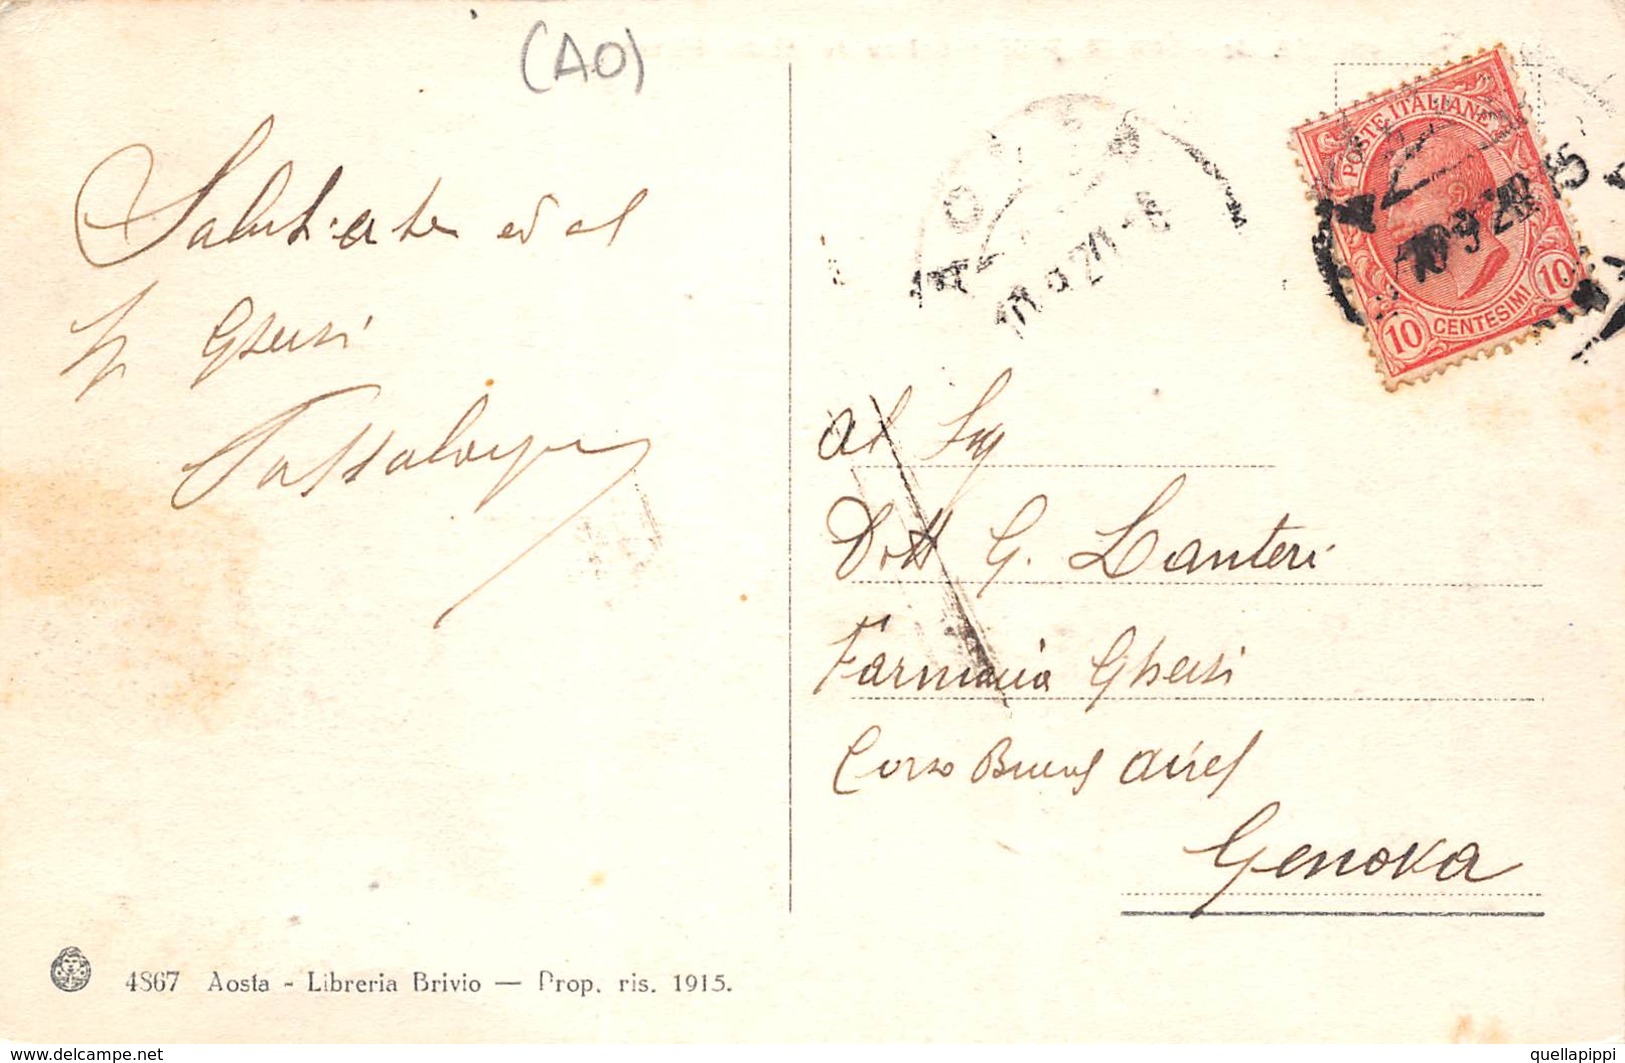 (AO)
POSTE ITALIANE
10 CENTESIMI 10
Salut
ed al
Sig Ghersi
al Sig
Dott G. Lanteri
Farmacia Ghersi
Corso Buenos Aires
Genova
4867 Aosta - Libreria Brivio — Prop. ris. 1915.
www.delcampe.net
quellapippi